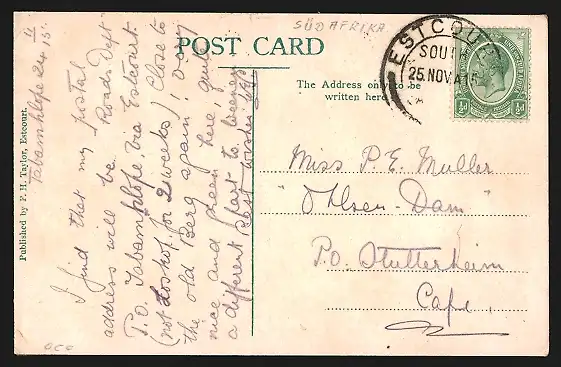 SÜDAFRIKA
POST CARD
The Address only to be
written here
ESTCOURT
SOUTH
25 NOV 15
½d ½d
Published by F. H. Taylor, Estcourt.
Tabamhlope 24
11
15.
I find that my postal
address will be "Roads Dept"
P.O. Tabamhlope, via Estcourt.
(not for 2 weeks) Close to
the old Berg again; very
nice and green here, quite
a different place to
Best wishes
Miss P. E. Muller
"Ohlsen-Dam"
P.O. Stutterheim
Cape,